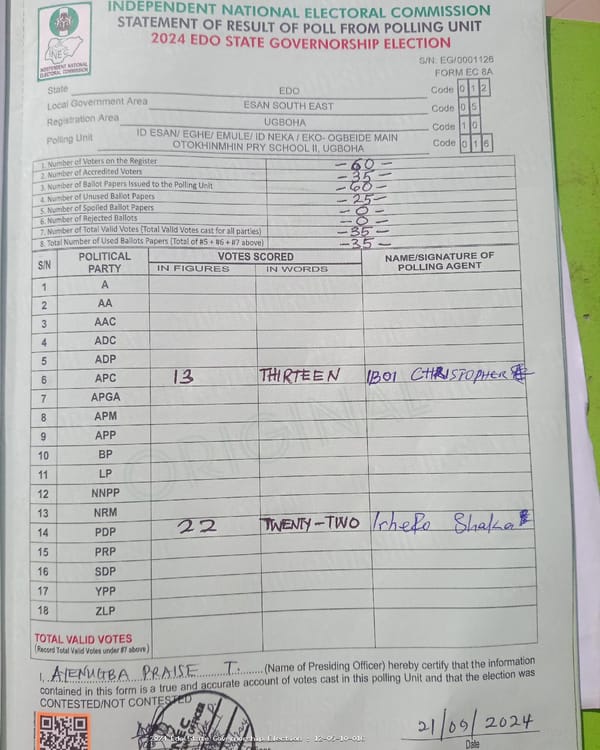 INDEPENDENT NATIONAL ELECTORAL COMMISSION
STATEMENT OF RESULT OF POLL FROM POLLING UNIT
2024 EDO STATE GOVERNORSHIP ELECTION
INEC
INDEPENDENT NATIONAL
ELECTORAL COMMISSION
S/N: EG/0001126
FORM EC 8A
State EDO Code 0 1 2
Local Government Area ESAN SOUTH EAST Code 0 5
Registration Area UGBOHA Code 1 0
Polling Unit ID ESAN/ EGHE/ EMULE/ ID NEKA / EKO- OGBEIDE MAIN OTOKHINMHIN PRY SCHOOL II, UGBOHA Code 0 1 6
1. Number of Voters on the Register -60-
2. Number of Accredited Voters -35-
3. Number of Ballot Papers Issued to the Polling Unit -60-
4. Number of Unused Ballot Papers -25-
5. Number of Spoiled Ballot Papers -0-
6. Number of Rejected Ballots -0-
7. Number of Total Valid Votes (Total Valid Votes cast for all parties) -35-
8. Total Number of Used Ballots Papers (Total of #5 + #6 + #7 above) -35-
S/N POLITICAL PARTY VOTES SCORED NAME/SIGNATURE OF POLLING AGENT
IN FIGURES IN WORDS
1 A
2 AA
3 AAC
4 ADC
5 ADP
6 APC 13 THIRTEEN IBOI CHRISTOPHER
7 APGA
8 APM
9 APP
10 BP
11 LP
12 NNPP
13 NRM
14 PDP 22 TWENTY-TWO Irhero Shaka
15 PRP
16 SDP
17 YPP
18 ZLP
ORIGINAL
TOTAL VALID VOTES
(Record Total Valid Votes under #7 above)
I, AIENUGBA PRAISE T. (Name of Presiding Officer) hereby certify that the information
contained in this form is a true and accurate account of votes cast in this polling Unit and that the election was
CONTESTED/NOT CONTESTED
21/09/2024
Date
2024 Edo State Governorship Election - 12-05-10-016